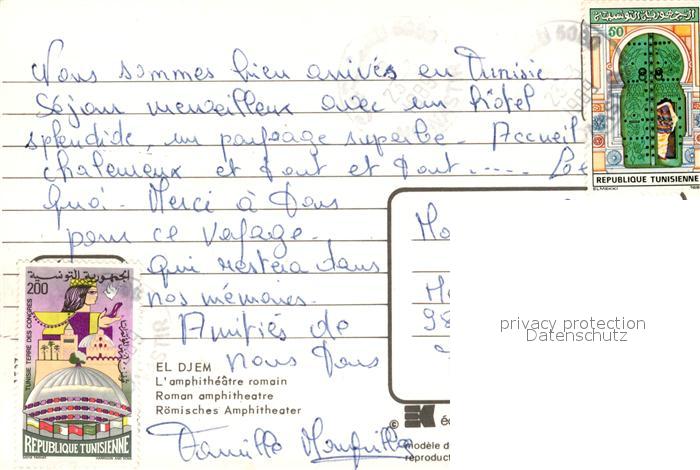 Nous sommes bien arrivés en Tunisie
Séjour merveilleux avec un hôtel
splendide, un paysage superbe - Accueil
chaleureux et tout et tout.....
quoi - Merci à tous
pour ce voyage -
qui restera dans
nos mémoires.
Amitiés de
nous tous
Famille
EL DJEM
L'amphithéâtre romain
Roman amphitheatre
Römisches Amphitheater
©
EK
modèle d
reproduct
privacy protection
Datenschutz
الجمهورية التونسية
60
REPUBLIQUE TUNISIENNE
ELMEKKI
الجمهورية التونسية
200
TUNISIE TERRE DES CONGRES
REPUBLIQUE TUNISIENNE